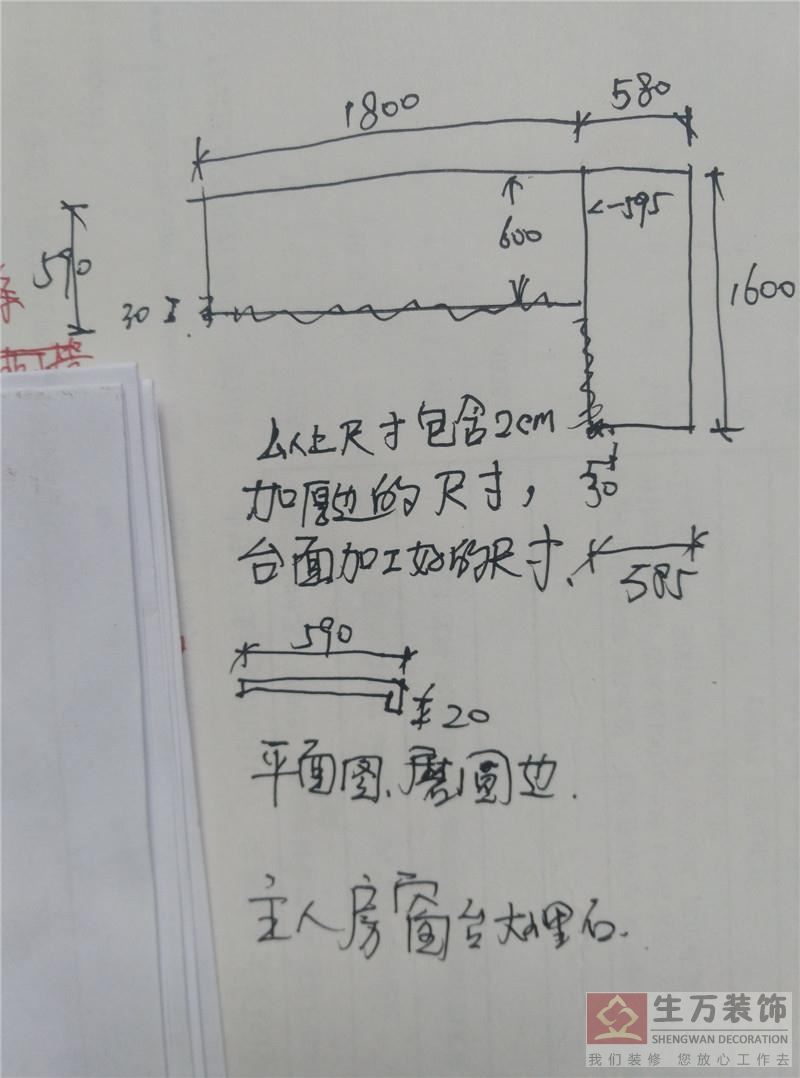 1800
580
<-595
600
590
1600
30
以上尺寸包含2cm
加厚边的尺寸,
30
台面加工好的尺寸.
585
590
20
平面图.磨圆边.
主人房窗台大理石.
生万装饰
SHENGWAN DECORATION
我们装修 您放心工作去